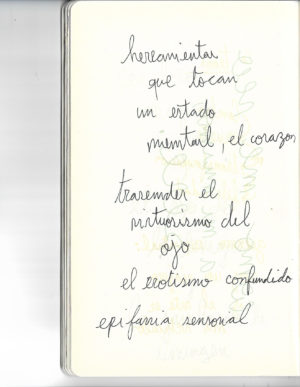 herramientas
que tocan
un estado
mental, el corazon
trasender el
virtuosismo del
ojo
el erotismo confundido
epifania sensorial